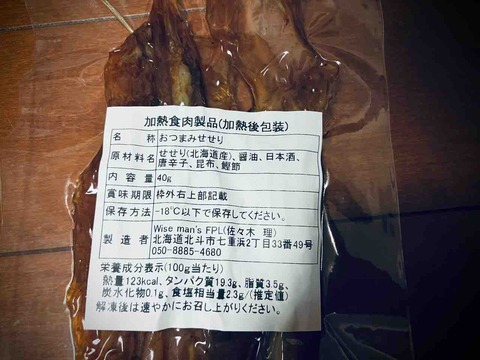 加熱食肉製品(加熱後包装)
名 称 おつまみせせり
原材料名 せせり(北海道産)、醤油、日本酒、
唐辛子、昆布、鰹節
内 容 量 40g
賞味期限 枠外右上部記載
保存方法 -18℃以下で保存してください。
製 造 者 Wise man's FPL(佐々木 理)
北海道北斗市七重浜2丁目33番49号
050-8885-4680
栄養成分表示(100g当たり)
熱量123kcal、タンパク質19.3g、脂質3.5g、
炭水化物0.1g、食塩相当量2.3g/(推定値)
解凍後は速やかにお召し上がりください。